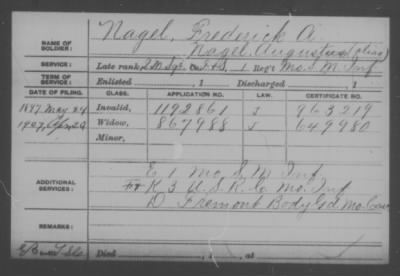 NAME OF SOLDIER: Nagel, Frederick A.
Nagel, Augustus (alias)
SERVICE: Late rank, Q M Sgt Co. F & S, 1 Reg't Mo. S. M. Inf
TERM OF SERVICE: Enlisted , 1 Discharged , 1
DATE OF FILING. CLASS. APPLICATION NO. LAW. CERTIFICATE NO.
1897 May 24 Invalid, 1192861 963219
1907, Apr. 20 Widow, 867988 649980
Minor,
ADDITIONAL SERVICES: E 1 Mo. S. M. Inf
K 3 U. S. R. C. Mo. Inf
D Fremont Body Gd Mo. Cav
REMARKS:
Died , 1 , at